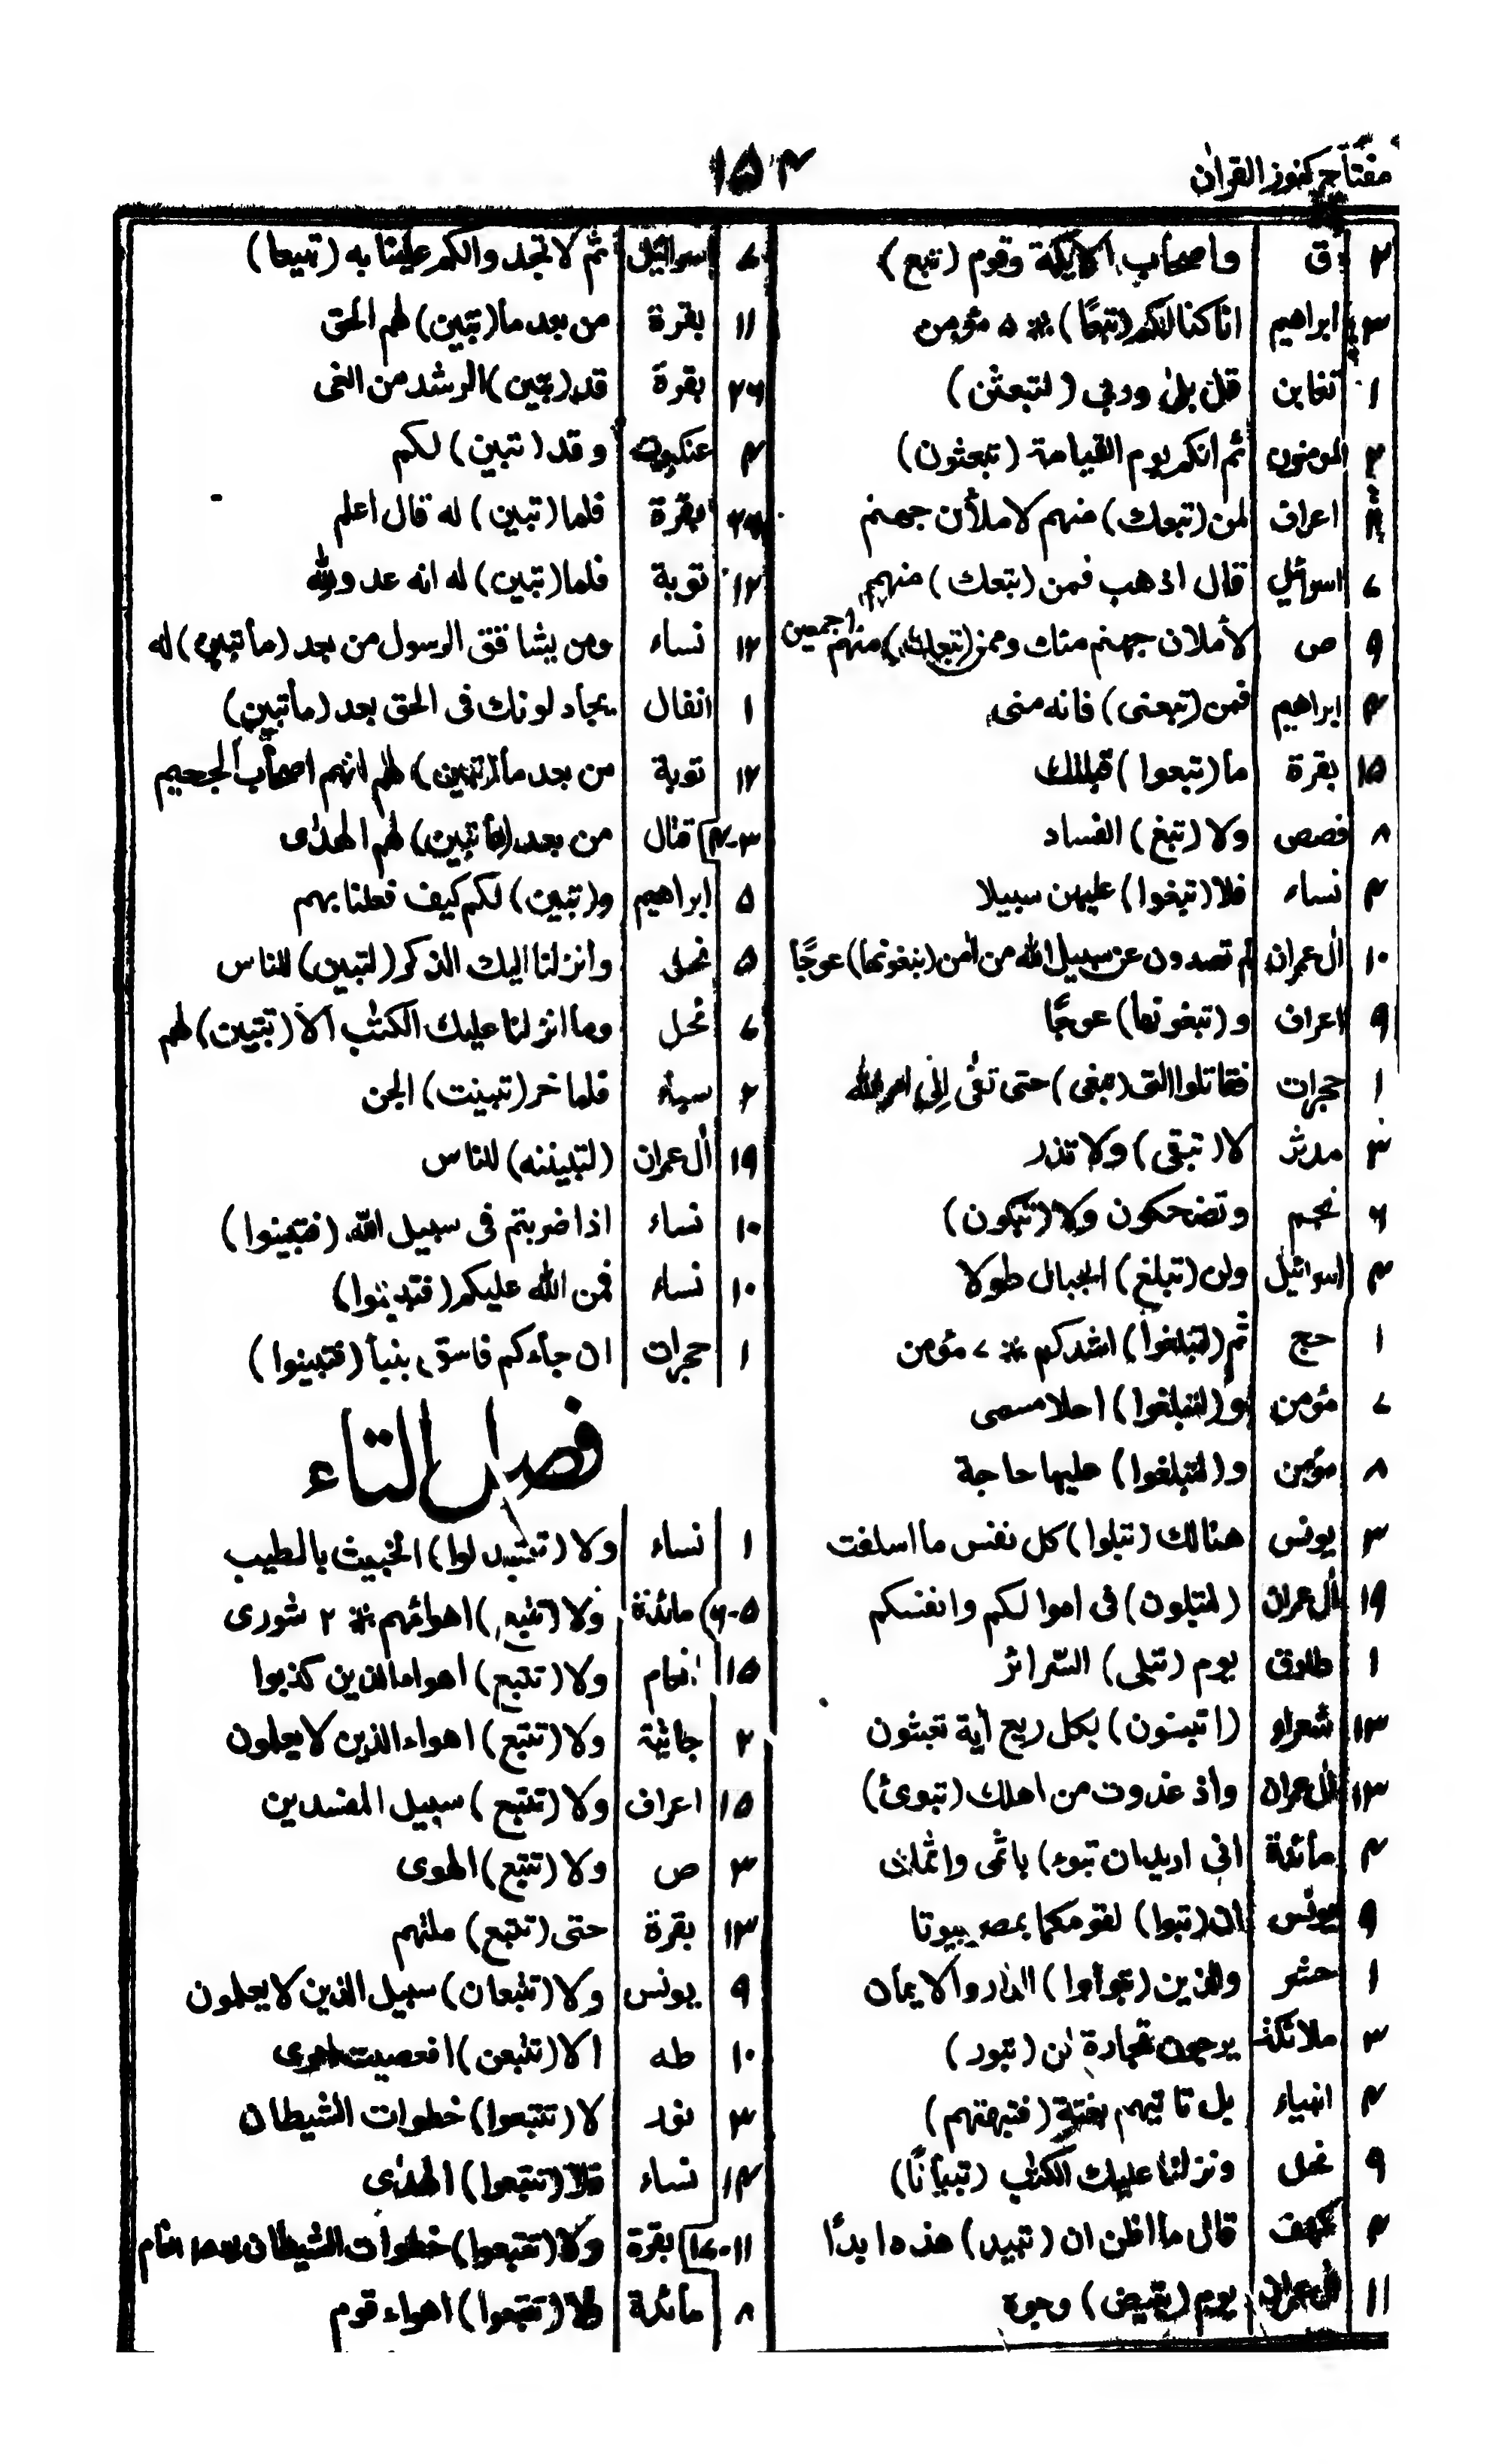 مفتاح كنوز القران
١٥٤
٢ ق واصحاب الايكة وقوم (تبع)
٣ ابراهيم انا كنا لكم (تبعًا) ٭ ٥ مؤمن
١ تغابن قل بلى وربي (لتبعثن)
المومنون ثم انكم يوم القيامة (تبعثون)
اعراف لمن (تبعك) منهم لاملأن جهنم
٧ اسرائيل قال اذهب فمن (تبعك) منهم
٩ ص لأملان جهنم منك وممن (تبعك) منهم اجمعين
٣ ابراهيم فمن (تبعنى) فانه منى
١٥ بقرة ما (تبعوا) قبلتك
٨ قصص ولا (تبغ) الفساد
٣ نساء فلا (تبغوا) عليهن سبيلا
١٠ أل عمران لم تصدون عن سبيل الله من أمن (تبغونها) عوجًا
٩ اعراف و (تبغونها) عوجًا
١ حجرات فقاتلوا التى (تبغى) حتى تفى إلى امر الله
٣ مدثر لا (تبقى) ولا تذر
٦ نجم وتضحكون ولا (تبكون)
٤ اسرائيل ولن (تبلغ) الجبال طولا
١ حج ثم (لتبلغوا) اشدكم ٭ ٧ مؤمن
٧ مؤمن و (لتبلغوا) اجلا مسمى
٨ مؤمن و (لتبلغوا) عليها حاجة
٣ يونس هنالك (تبلوا) كل نفس ما اسلفت
١٩ أل عمران (لتبلون) فى اموالكم وانفسكم
١ طارق يوم (تبلى) السّرائر
١٣ شعراء (اتبنون) بكل ريع أية تعبثون
١٣ أل عمران واذ غدوت من اهلك (تبوئ)
٤ مائدة انى اريد ان تبوء) باثمى واثمك
٩ يونس ان (تبوا) لقومكما بمصر بيوتا
١ حشر والذين (تبوأوا) الدار والايمان
٣ ملائكة يرجون تجارة لن (تبور)
٤ انبياء بل تاتيهم بغتة (فتبهتهم)
٩ نحل ونزلنا عليك الكتٰب (تبيانًا)
٤ كهف قال ما اظن ان (تبيد) هذه ابدًا
١١ أل عمران يوم (تبيض) وجوه
٧ اسرائيل ثم لا تجد والكم علينا به (تبيعا)
١١ بقرة من بعد ما (تبين) لهم الحق
بقرة قد (تبين) الرشد من الغى
٤ عنكبوت وقد (تبين) لكم
بقرة فلما (تبين) له قال اعلم
توبة فلما (تبين) له انه عدو لله
نساء ومن يشاقق الرسول من بعد (ما تبين) له
١ انفال يجادلونك فى الحق بعد (ما تبين)
توبة من بعد ما (تبين) لهم انهم اصحاب الجحيم
٣-٤ قتال من بعد (ما تبين) لهم الهدٰى
٥ ابراهيم و(تبين) لكم كيف فعلنا بهم
٥ نحل وانزلنا اليك الذكر (لتبين) للناس
٧ نحل وما انزلنا عليك الكتٰب الا (تبتين) لهم
٢ سباء فلما خر (تبينت) الجن
١٩ أل عمران (لتبيننه) للناس
١٠ نساء اذا ضربتم فى سبيل الله (فتبينوا)
١٠ نساء فمن الله عليكم (فتبينوا)
١ حجرات ان جاءكم فاسق بنبأ (فتبينوا)
فصل التاء
١ نساء ولا (تتبدلوا) الخبيث بالطيب
٥-٦ مائدة ولا (تتبع) اهوائهم ٭ ٢ شورى
١٥ انعام ولا (تتبع) اهواء الذين كذبوا
٢ جاثية ولا (تتبع) اهواء الذين لا يعلمون
١٥ اعراف ولا (تتبع) سبيل المفسدين
٣ ص ولا (تتبع) الهوى
١٣ بقرة حتى (تتبع) ملتهم
٩ يونس ولا (تتبعان) سبيل الذين لا يعلمون
١٠ طه الا (تتبعن) افعصيت امرى
٣ نور لا (تتبعوا) خطوات الشيطان
نساء فلا (تتبعوا) الهدٰى
بقرة ولا (تتبعوا) خطوات الشيطان
٨ مائدة ولا (تتبعوا) اهواء قوم